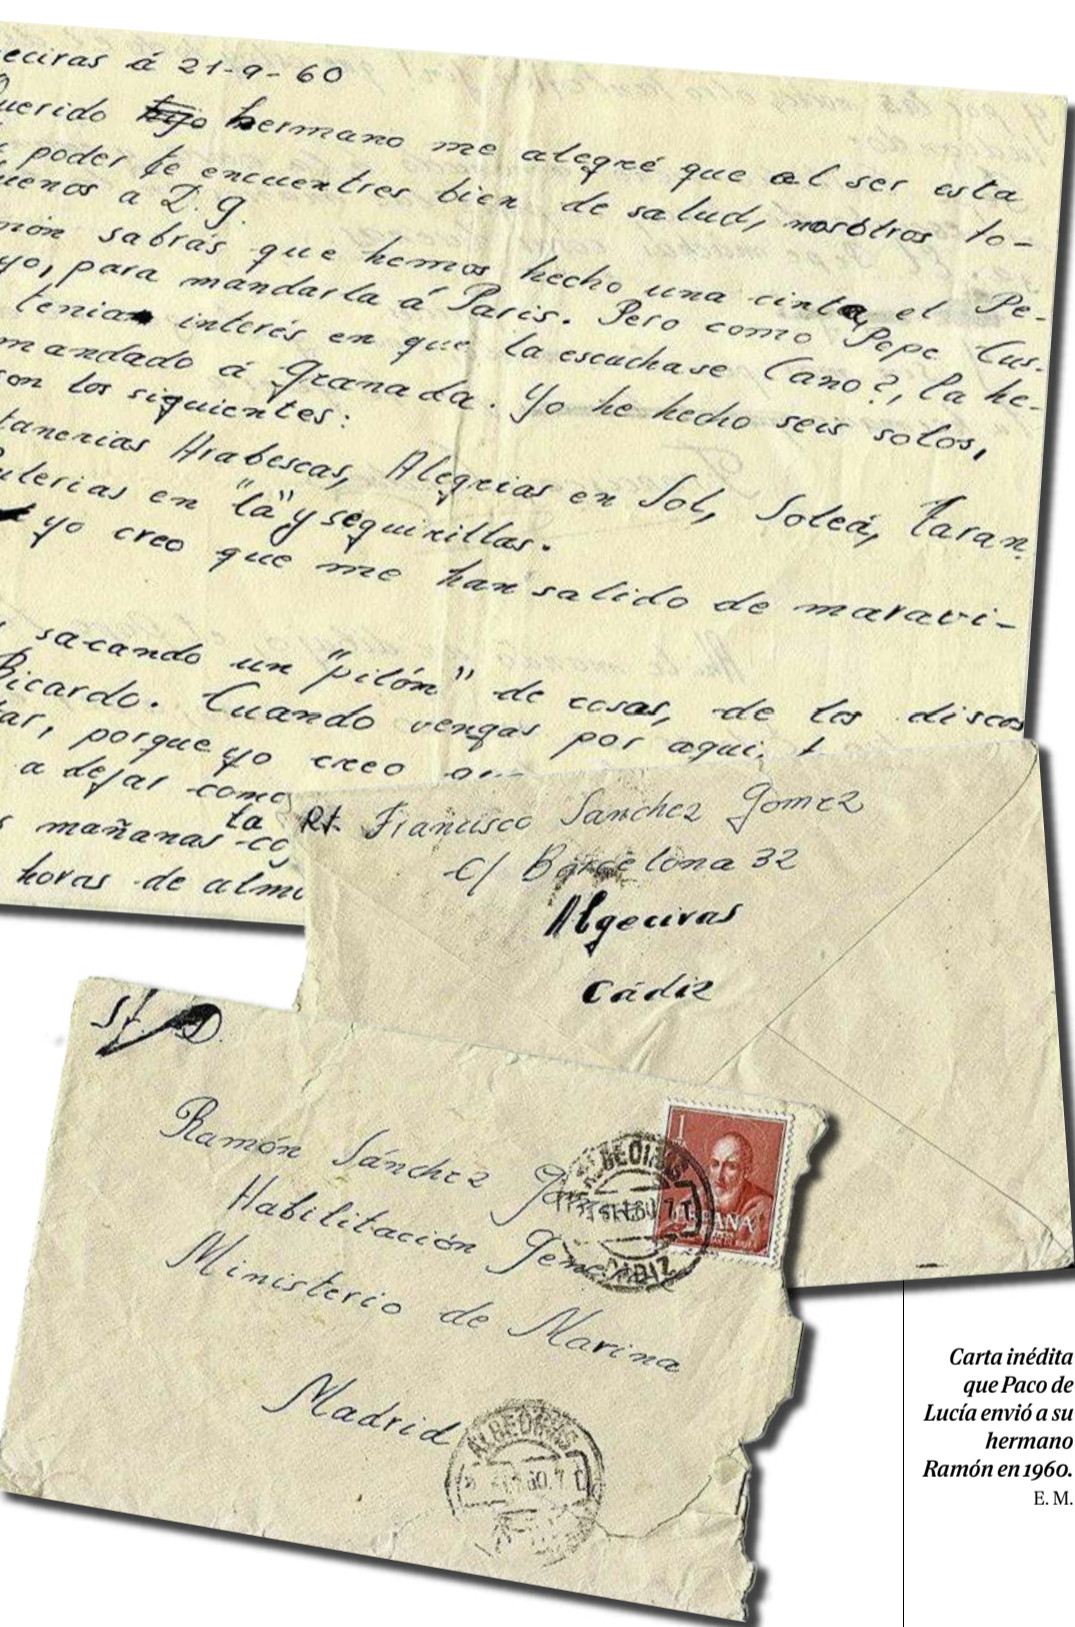 eciras á 21-9-60
Querido hijo hermano me alegré que al ser esta
poder te encuentres bien de salud, nosotros to-
uenos a D.g.
món sabrás que hemos hecho una cinta, el Pe-
yo, para mandarla á Paris. Pero como Pepe Cus-
tenia interés en que la escuchase Cano?, la he-
mandado á Granada. Yo he hecho seis solos,
son los siguientes:
tanerias Arabescas, Alegrias en Sol, Soleá, Taran
ulerias en "la" y seguirillas.
yo creo que me han salido de maravi-
sacando un "pilón" de cosas, de los discos
Ricardo. Cuando vengas por aqui,
tar, porque yo creo
a dejar como
ta
s mañanas co
horas de almu
Rt. Francisco Sanchez Gomez
C/ Barcelona 32
Algeciras
Cádiz
Ramón Sánchez
Habilitación General
Ministerio de Marina
Madrid
1
ESPAÑA
CADIZ
Carta inédita
que Paco de
Lucía envió a su
hermano
Ramón en 1960.
E. M.